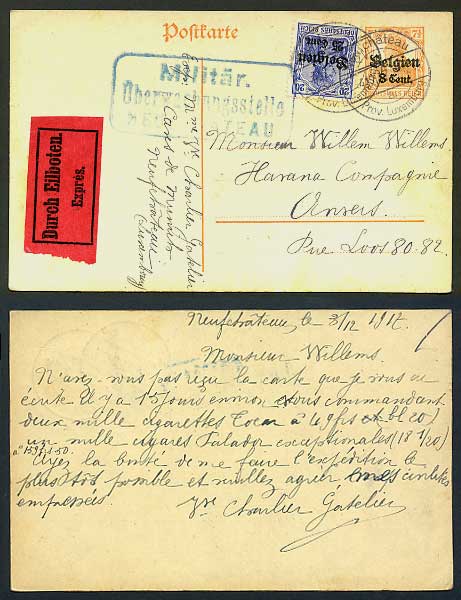 Postkarte
7½
Belgien
8 Cent.
Belgien
25 Cent.
20 20
Château
Prov. Luxem
Militär.
Überwachungsstelle
TEAU
Durch Eilboten.
Exprès.
Exp. Mme Ve Charlier Gatelier
Neufchâteau
Luxembourg
Monsieur Willem Willems.
Havana Compagnie
Anvers.
Rue Loos 80-82.
Neufchâteau, le 3/12 1917.
Monsieur Willems.
N'avez-vous pas reçu la carte que je vous ai
écrite Il y a 15 jours environ vous commandant
deux mille cigarettes à 49 frs et bl 20)
un mille cigares exceptionales (18 1/20)
à 159 frs 50.
Ayez la bonté de me faire l'expédition le
plus tôt possible et veuillez agréer mes civilités
empressées.
Ve Charlier Gatelier